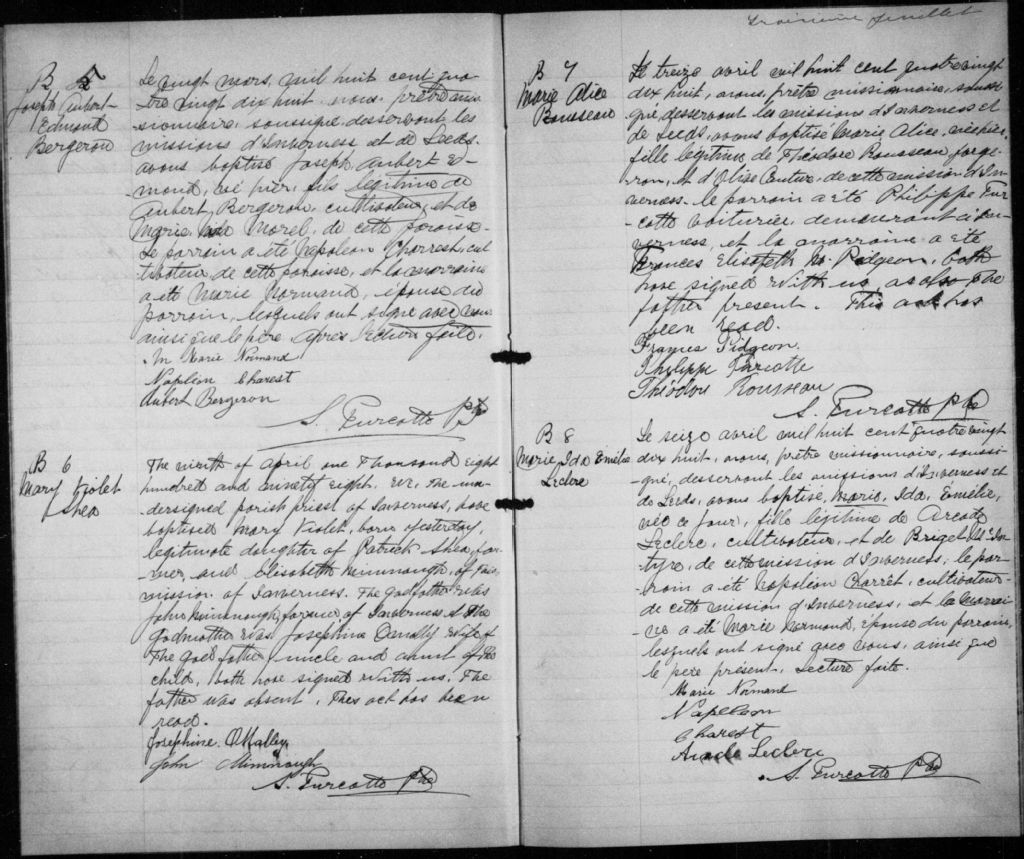 B 5
Joseph Aubert
Edmond
Bergeron
Le vingt mars, mil huit cent qua-
tre vingt dix huit, nous, prêtre mis-
sionnaire, soussigné, desservant les
missions d'Inverness et de Leeds,
avons baptisé Joseph Aubert Ed-
mond, né hier, fils légitime de
Aubert Bergeron, cultivateur, et de
Marie Morel, de cette paroisse.
Le parrain a été Napoléon Charrest, cul-
tivateur, de cette paroisse, et la marraine
a été Marie Normand, épouse du
parrain, lesquels ont signé avec nous
ainsi que le père. Après lecture faite.
Marie Normand
Napoleon Charest
Aubert Bergeron
S. Turcotte Ptre
B 6
Mary Violet
Shea
The ninth of April one thousand eight
hundred and ninety eight. We, the un-
dersigned parish priest of Inverness, have
baptised Mary Violet, born yesterday,
legitimate daughter of Patrick Shea, far-
mer, and Elisabeth Mimnaugh, of this
mission of Inverness. The godfather was
John Mimnaugh, farmer, of Inverness & the
godmother was Josephine wife of
the god father, uncle and aunt of the
child, both have signed with us. The
father was absent. This act has been
read.
Josephine O'Malley
John Mimnaugh
S. Turcotte Ptre
troisième feuillet
B 7
Marie Alice
Rousseau
Le treize avril mil huit cent quatre vingt
dix huit, nous, prêtre missionnaire, soussi-
gné, desservant les missions d'Inverness et
de Leeds, avons baptisé Marie Alice, née hier,
fille légitime de Théodore Rousseau, forge-
ron, et d'Olise Couture, de cette mission d'In-
verness. le parrain a été Philippe Tur-
cotte voiturier, demeurant à In-
verness, et la marraine a été
Frances Elisabeth Pidgeon, both
have signed with us, as also the
father present. This act has
been read.
Frances Pidgeon
Philippe Turcotte
Théodore Rousseau
S. Turcotte Ptre
B 8
Marie Ida Emélie
Leclerc
Le seize avril mil huit cent quatre vingt
dix huit, nous, prêtre missionnaire, soussi-
gné, desservant les missions d'Inverness et
de Leeds, avons baptisé, Marie, Ida, Emélie,
née ce jour, fille légitime de Arcade
Leclerc, cultivateur, et de Briget McIn-
tyre, de cette mission d'Inverness, le par-
rain a été Napoléon Charret, cultivateur
de cette mission d'Inverness, et la marrai-
ne a été Marie Normand, épouse du parrain,
lesquels ont signé avec nous, ainsi que
le père présent. Lecture faite.
Marie Normand
Napoleon
Charest
Arcade Leclerc
S. Turcotte Ptre